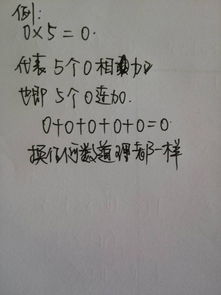 例:
0×5=0.
代表5个0相加
也即5个0连加.
0+0+0+0+0=0
换任何数道理都一样